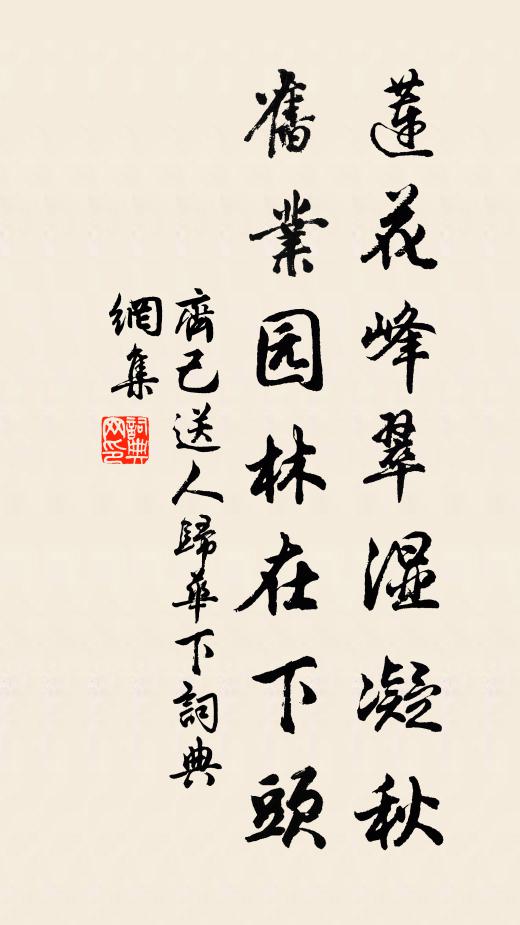 蓮花峰翠濕凝秋
舊業园林在下頭
齊己送人歸華下詞典
網集
詞典
网印